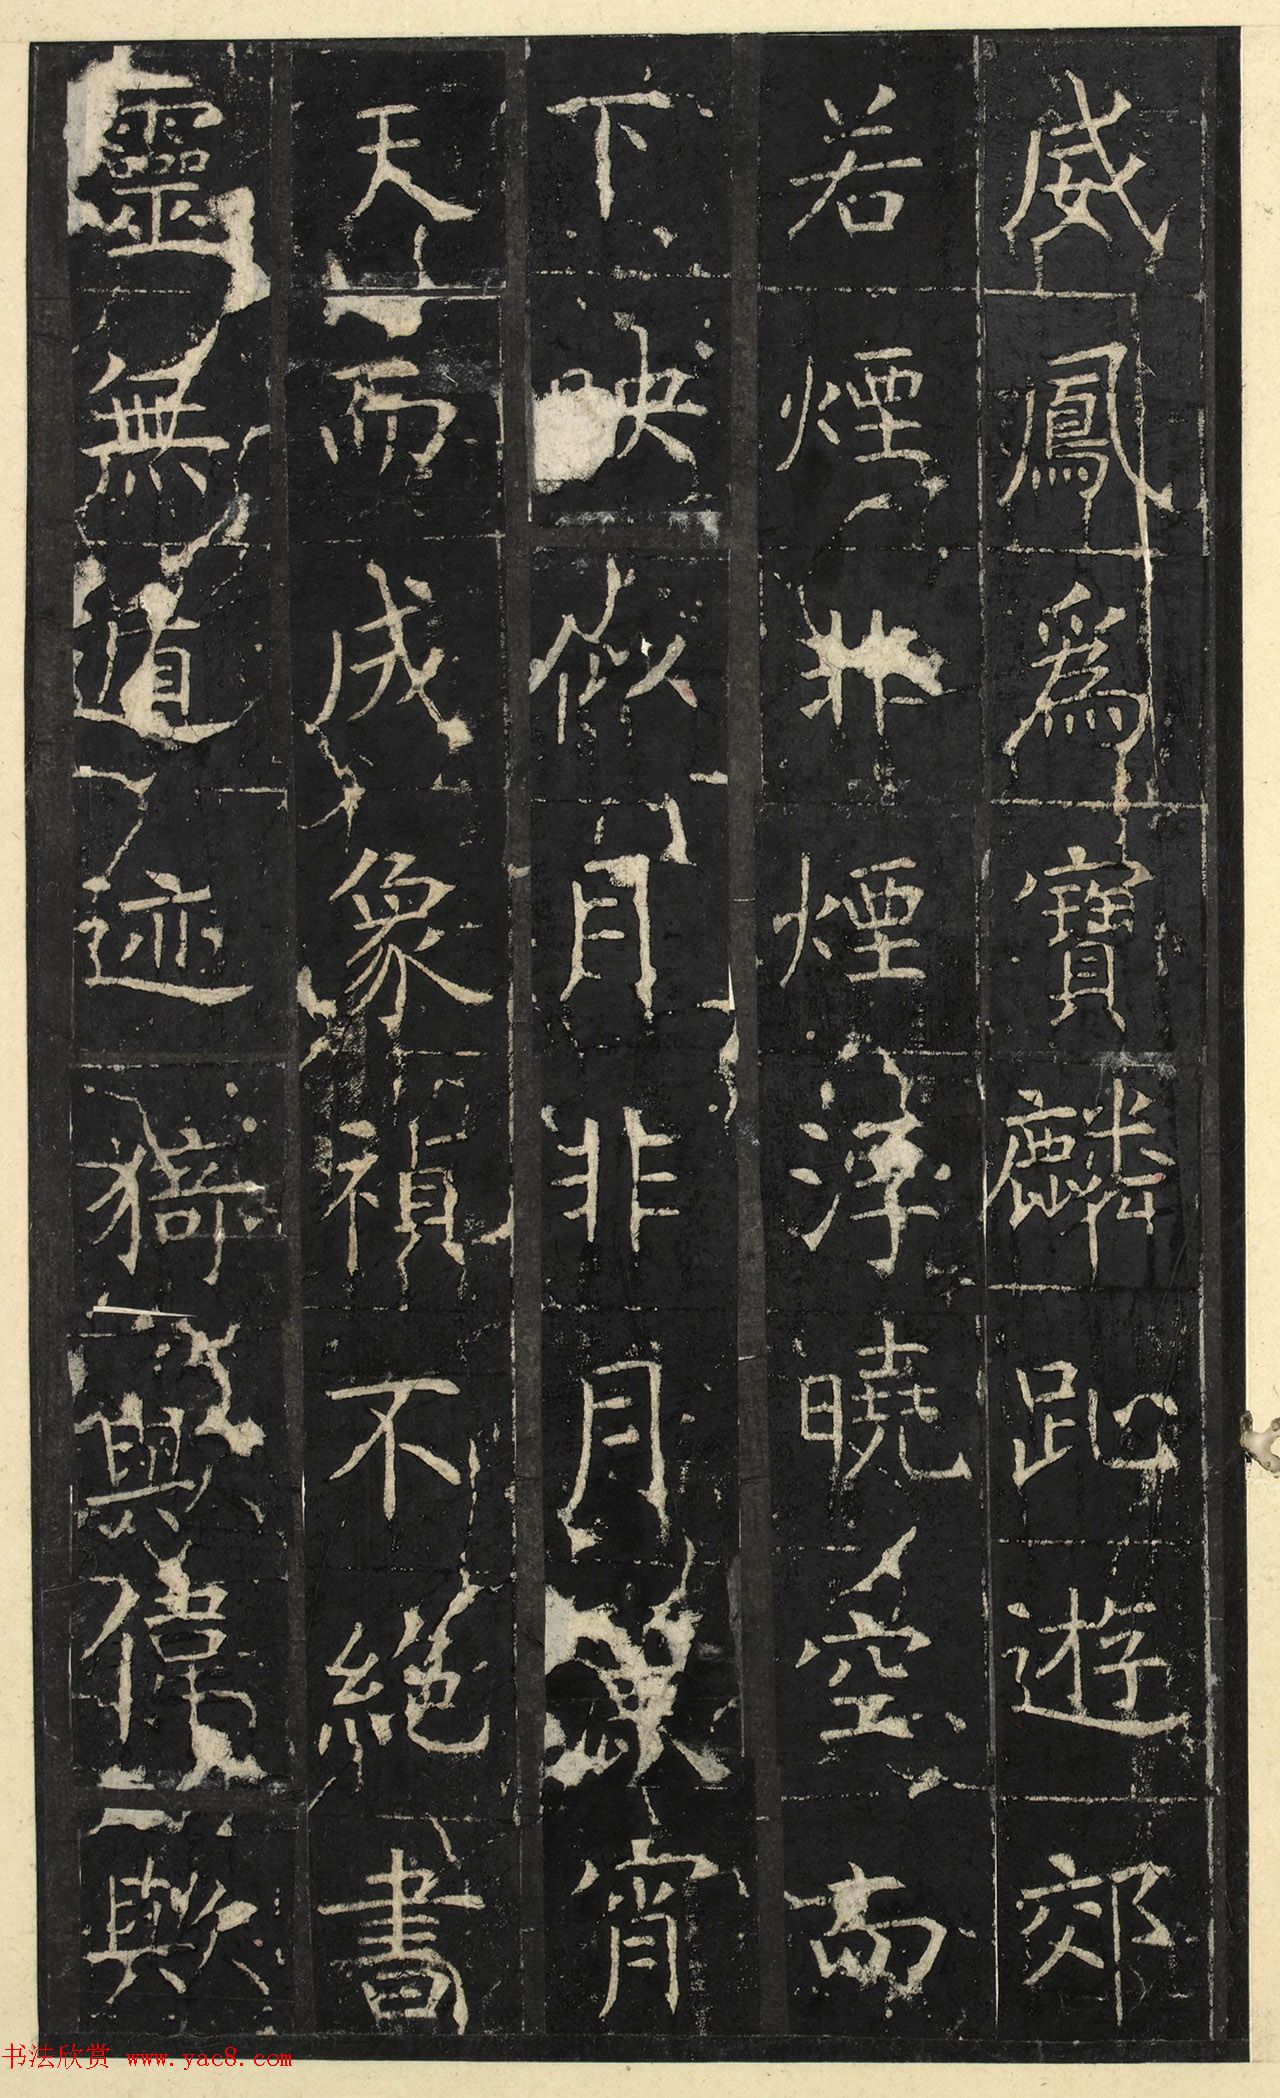 威鳳爲寶麟趾遊郊
若煙非煙浮曉空而
下映似月非月麗宵
天而成象禎不絕書
靈無遁迹猗與偉歟
书法欣赏 www.yac8.com